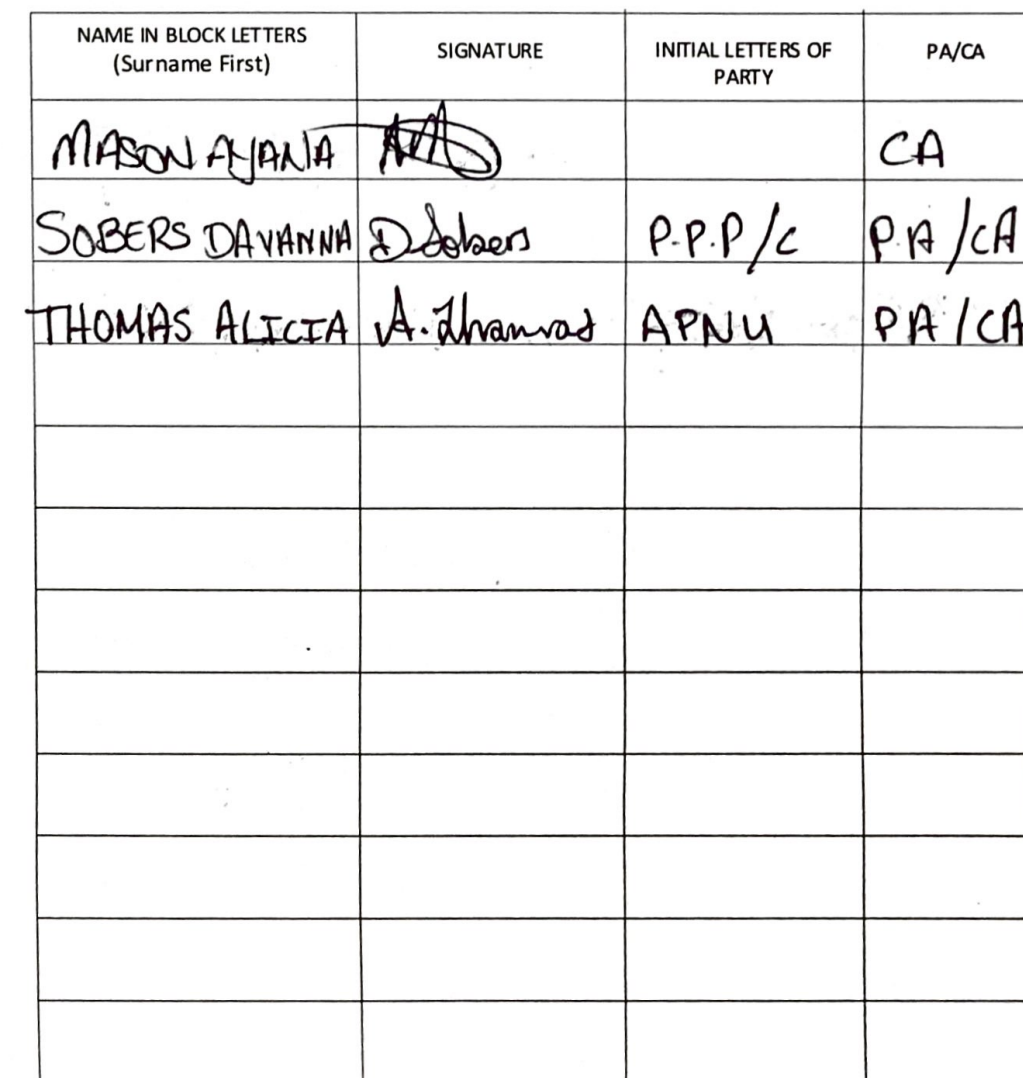 NAME IN BLOCK LETTERS
(Surname First)
SIGNATURE
INITIAL LETTERS OF
PARTY
PA/CA
MASON AYANA CA
SOBERS DAVANNA D. Sobers P.P.P/C P.A/CA
THOMAS ALICIA A. Thomas APNU PA/CA